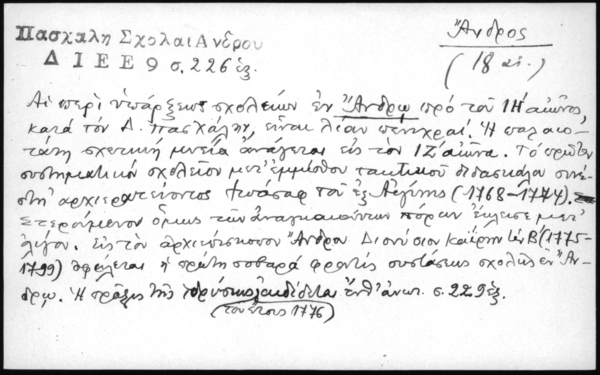 Πασχάλη Σχολαι Ανδρου
Δ Ι Ε Ε 9 σ. 226 ἑξ.
Ἄνδρος
(18 αἰ.)
Αἱ περὶ ὑπάρξεως σχολείων ἐν Ἄνδρῳ πρὸ τοῦ ΙΗ' αἰῶνος,
κατὰ τὸν Δ. Πασχάλην, εἶναι λίαν πενιχραί. Ἡ παλαιο-
τάτη σχετικὴ μνεία ἀνάγεται εἰς τὸν ΙΖ' αἰῶνα. Τὸ πρῶτον
συστηματικὸ σχολεῖον μετ' ἐμμίσθου τακτικοῦ διδασκάλου συνέ-
στη ἀρχιερατεύοντος τοῦ ἐξ Αἰγίνης (1768-1774).
Στερούμενον ὅμως τῶν ἀναγκαιούντων πόρων ἔκλεισε μετ'
ὀλίγον. Εἰς τὸν ἀρχιεπίσκοπον Ἄνδρου Διονύσιον Καΐρην τὸν Β' (1775-
1799) ὀφείλεται ἡ πρώτη σοβαρὰ φροντὶς συστάσεως σχολῆς ἐν Ἄν-
δρῳ. Ἡ πρᾶξις τῆς ἱδρύσεως ἐκδίδεται ἔνθ' ἀνωτ. σ. 229 ἑξ.
(τοῦ ἔτους 1776)